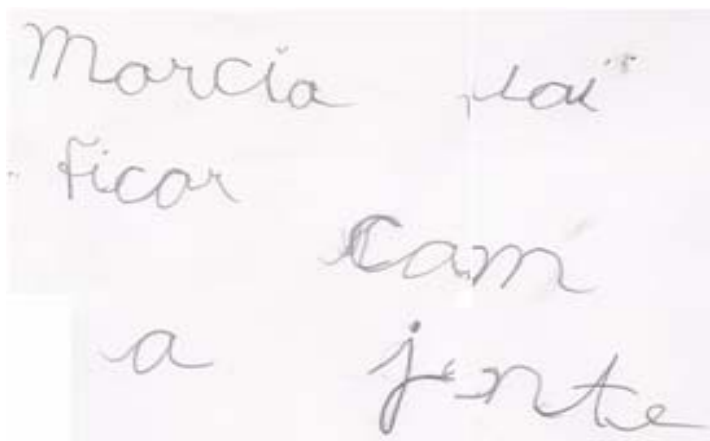 Marcia vai
ficar
cam
a jente